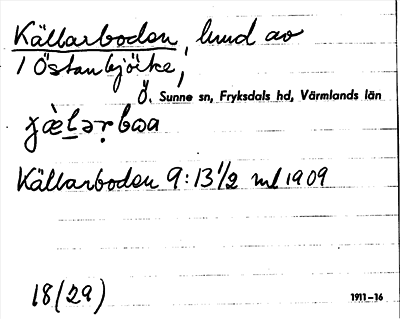 Källarboden, lund av
1 Östanbjörke,
Ö. Sunne sn, Fryksdals hd, Värmlands län
Källarboden 9:13 1/2 ml 1909
18(29)
1911–16